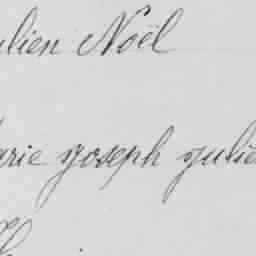 ulien Noël
arie joseph julie